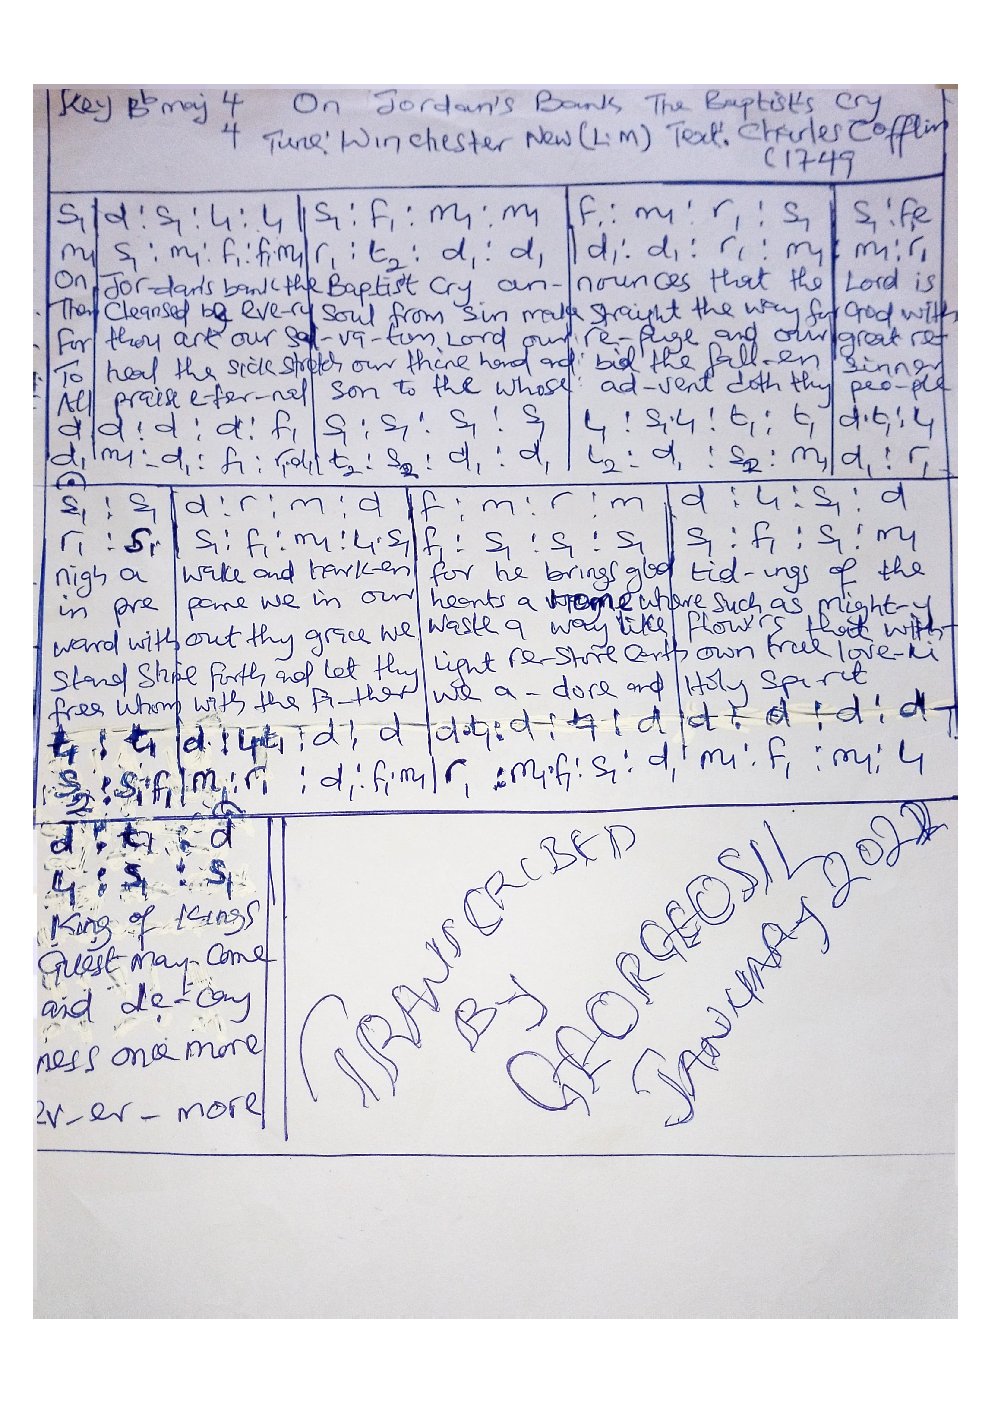 Key Bb maj 4 On Jordan's Bank The Baptist's Cry
4 Tune: Winchester New (L.M) Text: Charles Cofflin
C1749
s₁ | d : s₁ : l₁ : l₁ | s₁ : f₁ : m₁ : m₁ | f₁ : m₁ : r₁ : s₁ | s₁ : fe
m₁ | s₁ : m₁ : f₁ : f₁.m₁ | r₁ : t₂ : d₁ : d₁ | d₁ : d₁ : r₁ : m₁ | m₁ : r₁
On Jor-dan's bank the Baptist Cry an- nounces that the Lord is
Then Cleansed be eve-ry Soul from Sin make straight the way for God with
For thou art our Sal-va-tion, Lord our re-fuge and our great re-
To heal the sick stretch our thine hand and bid the fall-en Sinner
All praise e-ter-nal Son to the whose ad-vent doth thy peo-ple
d | d : d : d : f₁ | s₁ : s₁ : s₁ : s₁ | l₁ : s₁.l₁ : t₁ : t₁ | d.t₁ : l₁
d₁ | m₁ : d₁ : f₁ : r₁.d₁ | t₂ : s₂ : d₁ : d₁ | t₂ : d₁ : s₂ : m₁ | d₁ : r₁
s₁ : s₁ | d : r : m : d | f : m : r : m | d : l₁ : s₁ : d
r₁ : s₁ | s₁ : f₁ : m₁ : l₁.s₁ | f₁ : s₁ : s₁ : s₁ | s₁ : f₁ : s₁ : m₁
nigh a wake and hark-en for he brings glad tid-ings of the
in pre pare we in our hearts a home where such as might-y
ward with out thy grace we waste a way like flowers that with-
Stand Shine forth and let thy light re-store earth's own true love-li
free whom with the Fa-ther we a-dore and Holy Spirit
t₁ : t₁ | d : l₁.t₁ : d : d | d.t₁ : d : t₁ : d | d : d : d : d
s₂ : s₁.f₁ | m₁ : r₁ : d₁ : f₁.m₁ | r₁ : m₁.f₁ : s₁ : d₁ | m₁ : f₁ : m₁ : l₁
d : t₁ : d
l₁ : s₁ : s₁
King of Kings
Guest may-come
and de-cay
ness once more
ev-er-more
TRANSCRIBED
BY
GEORGEOSIL
JANUARY 2022